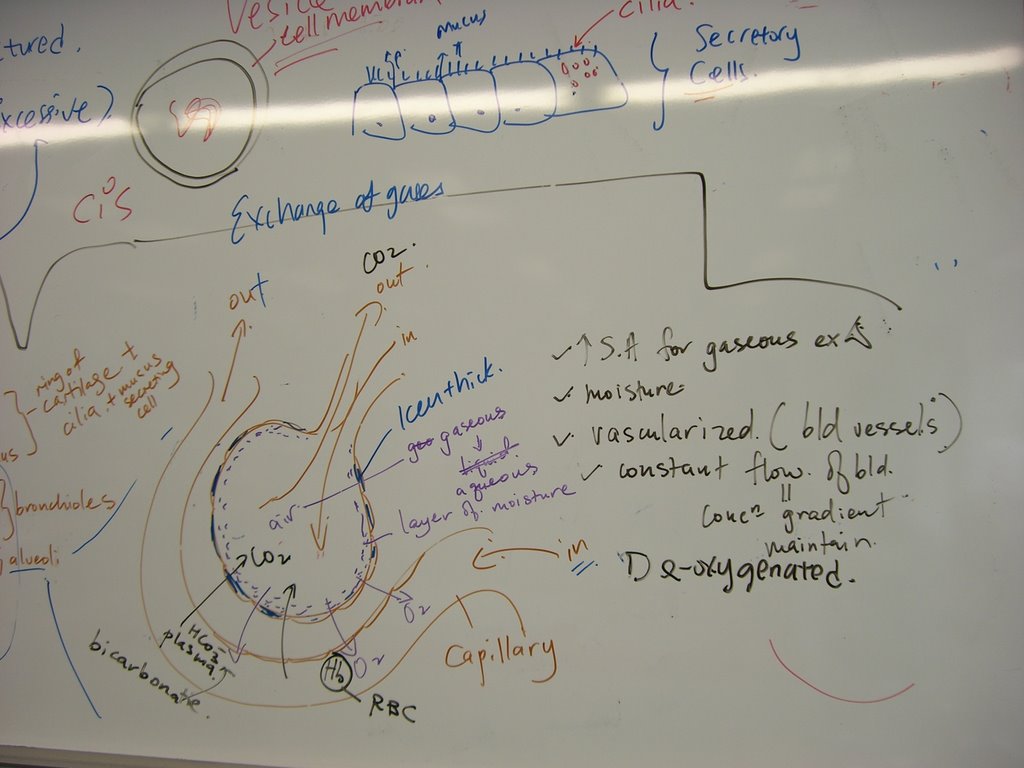 Vesicle
cell membrane
tured.
xcessive)
mucus
cilia.
Secretory
Cells.
Exchange of gases
out
CO2.
out.
in
ring of
cartilage +
cilia + mucus
secreting
cell
us
bronchioles
alveoli
1 cell thick.
gaseous
↓
liquid
aqueous
layer of moisture
air
CO2
HCO3-
plasma.
bicarbonate.
O2
O2
Hb
RBC
Capillary
in
✓ ↑ S.A for gaseous ex
✓ moisture
✓ vascularized. (bld vessels)
✓ constant flow. of bld.
=
concn gradient
maintain.
De-oxygenated.